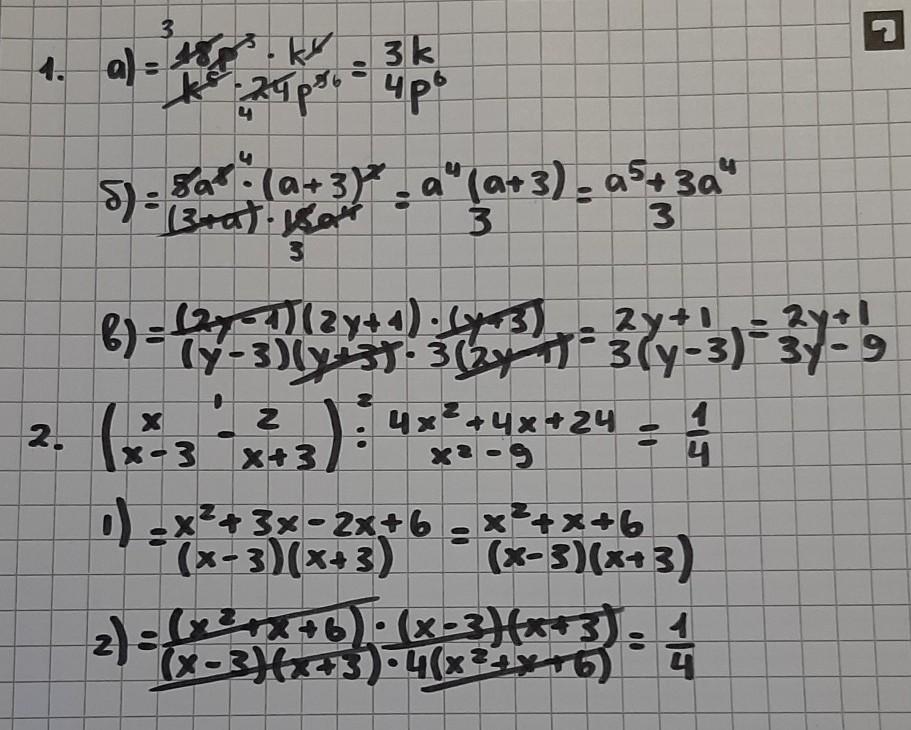 1. а) = 18p³ · k⁴ / k⁵ · 24p⁹ = 3k / 4p⁶
б) = 5a⁸ · (a+3)² / (3+a) · 15a⁴ = a⁴(a+3) / 3 = a⁵+3a⁴ / 3
в) = (2y-1)(2y+1) · (y+3) / (y-3)(y+3) · 3(2y-1) = 2y+1 / 3(y-3) = 2y+1 / 3y-9
2. (x / x-3 - 2 / x+3) : 4x²+4x+24 / x²-9 = 1/4
1) = x²+3x-2x+6 / (x-3)(x+3) = x²+x+6 / (x-3)(x+3)
2) = (x²+x+6) · (x-3)(x+3) / (x-3)(x+3) · 4(x²+x+6) = 1/4